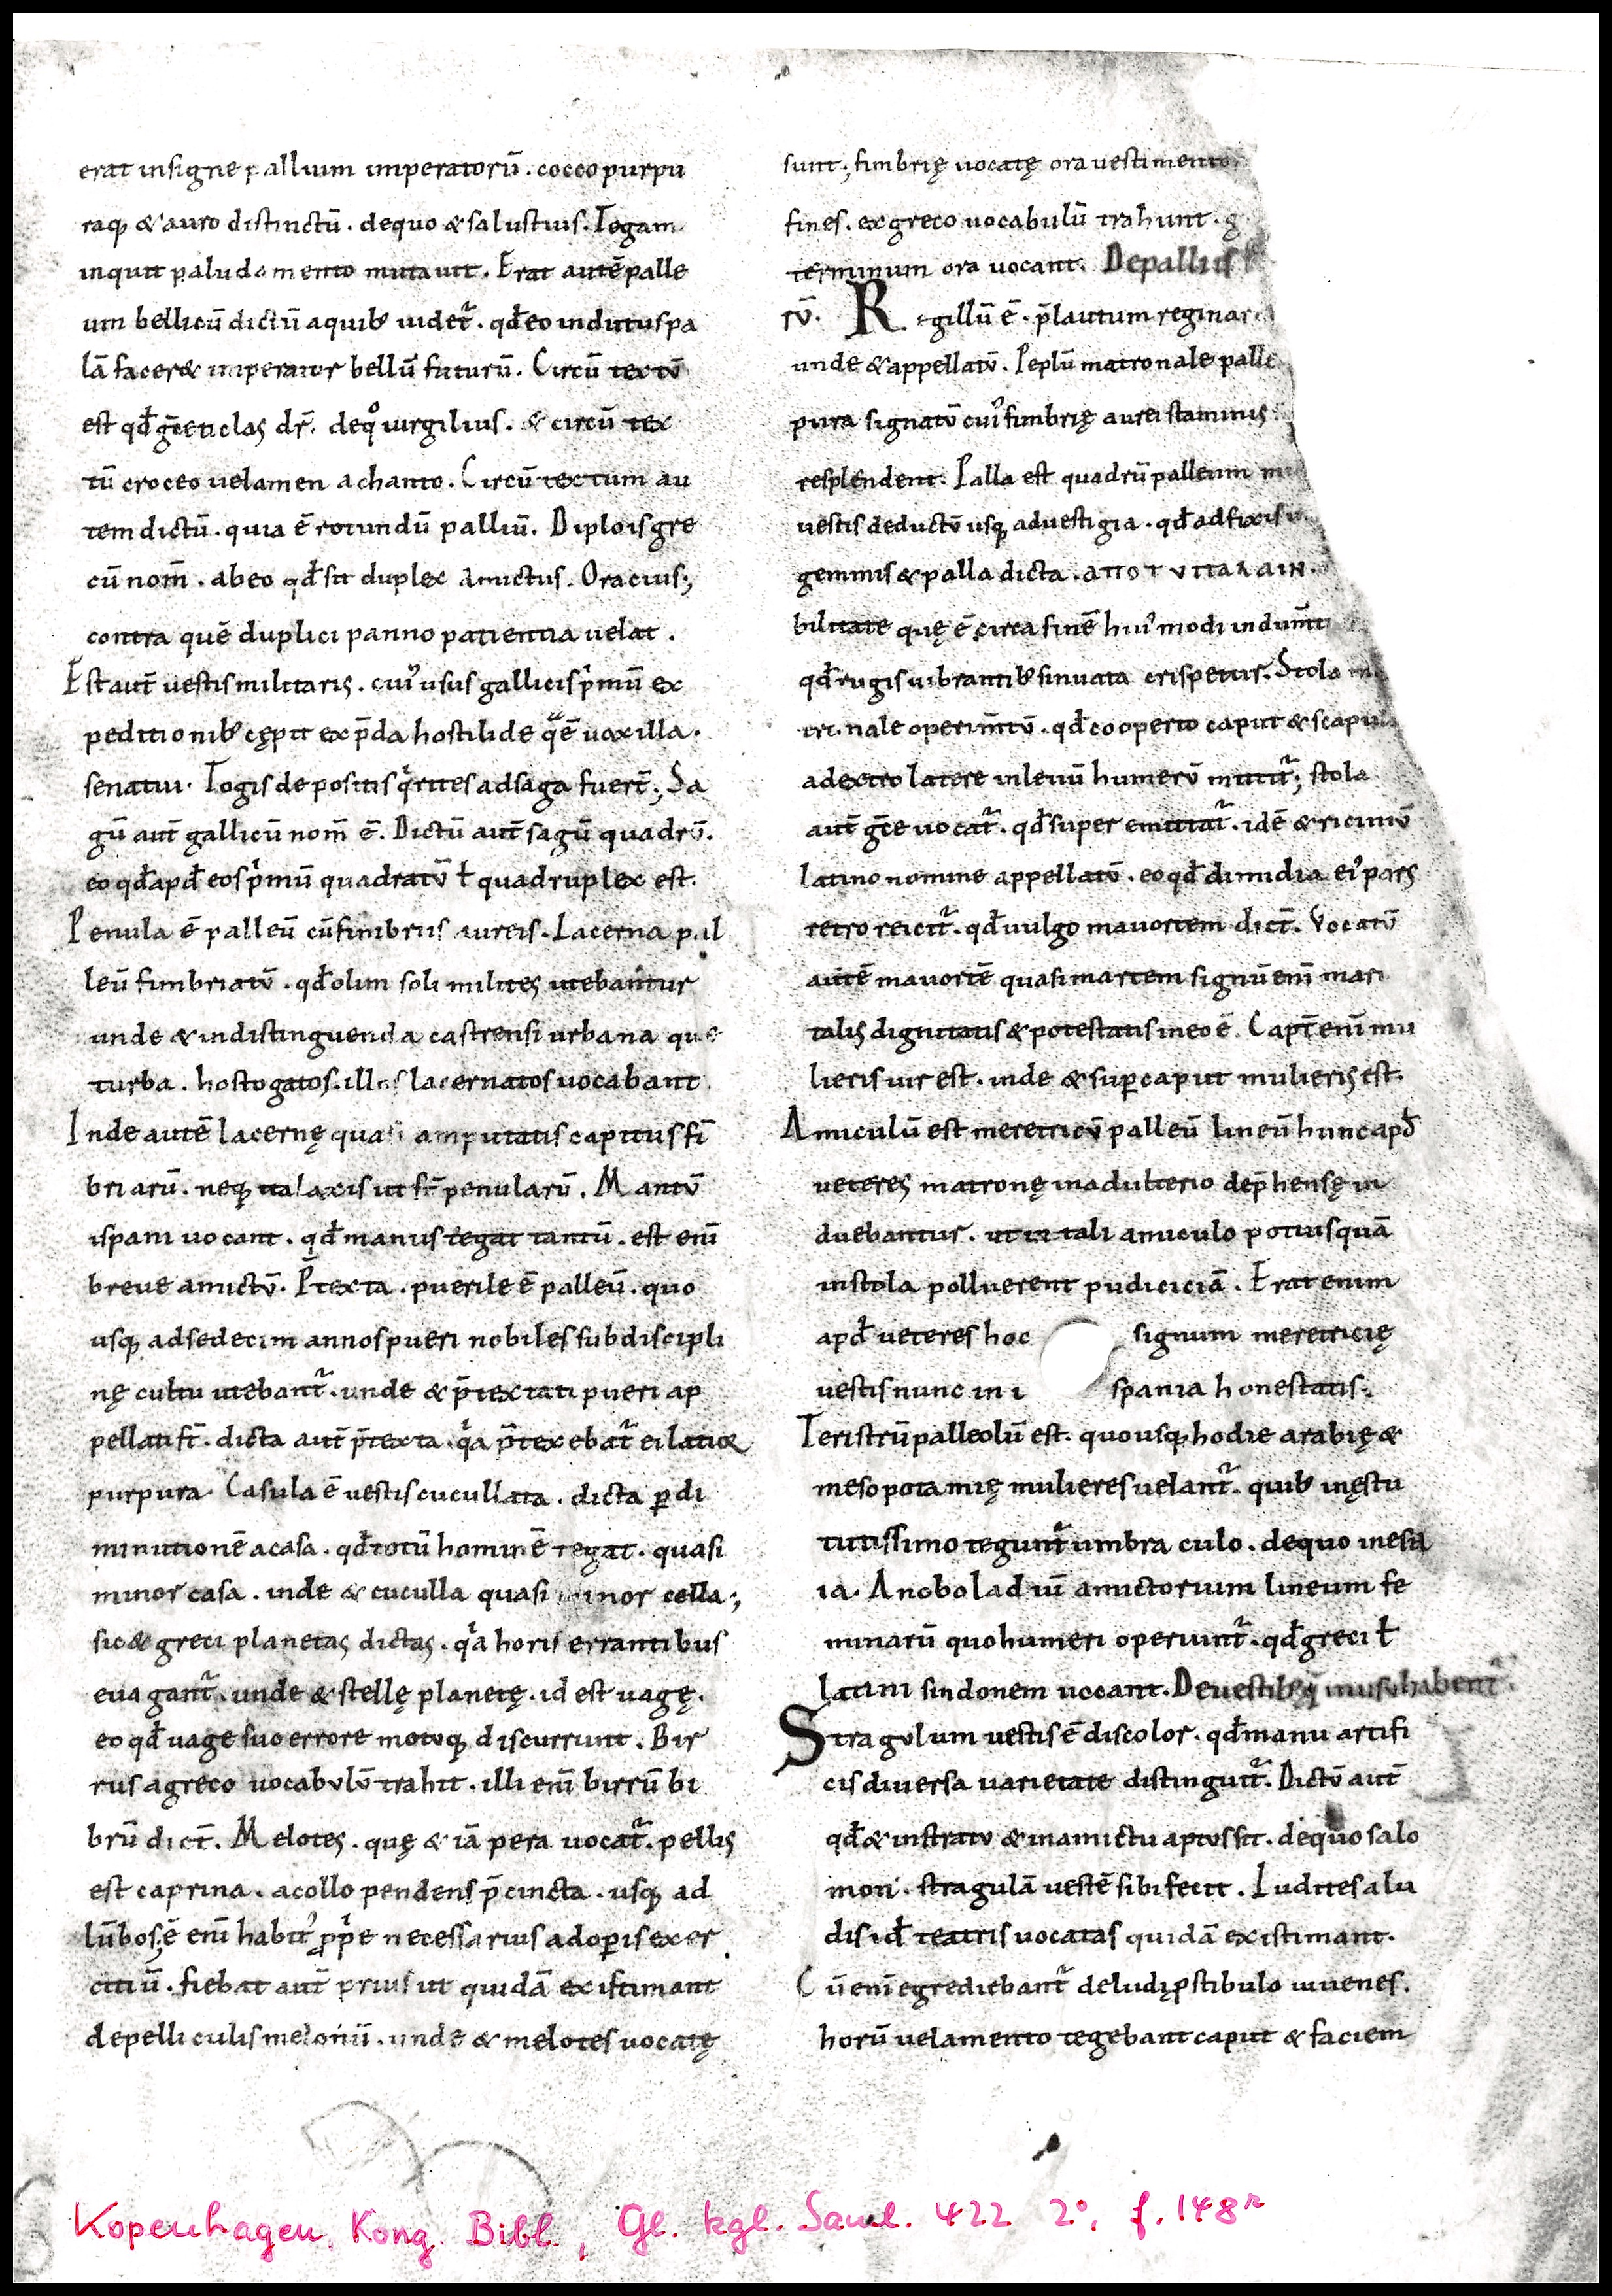 erat insigne pallium imperatorū . cocco purpu
raq; & auro distinctū . de quo & salustius . Togam
inquit paludamento mutauit . Erat autē palle
um bellicū dictū a quib; uidet᷑ . qđ eo indutus pa
lā facer& imperator bellū futurū . Circū textū
est qđ grece clas dr̄ . de qͦ uirgilius . & circū tex
tū croceo uelamen achanto . Circū textum au
tem dictū . quia ē rotundū palliū . Diplois gre
cū nom̄ . ab eo qđ sit duplex amictus . Oracius ;
contra quē duplici panno patientia uelat .
Est aut̄ uestis militaris . cui᾽ usus gallicis pͥmū ex
peditionib; cępit ex p̄da hostili de q̄ ē uox illa .
senatui . Togis depositis qͥrites ad saga fuer̄t ; Sa
gū aut̄ gallicū nom̄ ē . Dictū aut̄ sagū quadrū .
eo qđ apđ eos pͥmū quadratū ł quadruplex est .
Penula ē palleū cū fimbriis aureis . Lacerna pal
leū fimbriatū . qđ olim soli milites utebantur
unde & in distinguenda castrensi urbana que
turba . hos togatos . illos lacernatos uocabant .
Inde autē lacernę quasi amputatis capitus fī
briarū . neq; ita laxis ut sr̄ penularū . Mantū
ispani uocant . qđ manus tegat tantū . est enī
breue amictū . P̄texta . puerile ē palleū . quo
usq; ad sedecim annos pueri nobiles sub discipli
nę cultu utebant᷑ . unde & p̄textati pueri ap
pellati st̄ . dicta aut̄ p̄texta . qͥa p̄texebat᷑ ei latior
purpura . Casula ē uestis cucullata . dicta ꝑ di
minutionē a casa . qđ totū hominē tegat . quasi
minor casa . inde & cuculla quasi minor cella ;
sic & greci planetas dictas . qͥa horis errantibus
euagant᷑ . unde & stellę planetę . id est uagę .
eo qđ uage suo errore motuq; discurrunt . Bir
rus a greco uocabulū trahit . illi enī birrū bi
brū dict̄ . Melotes . quę & iā pera uocat᷑ . pellis
est caprina . a collo pendens p̄cincta . usq; ad
lūbos ; ē enī habit᾽ ꝓpͥe necessarius ad oꝑis exer
citiū . fiebat aut̄ prius ut quidā existimant
de pelliculis melonū . unde & melotes uocatę
sunt ; fimbrię uocatę ora uestimento
fines . ex greco uocabulū trahunt . g
terminum ora uocant . De palliis
rū . Regillū ē . p̄lautum reginar
unde & appellatū . Peplū matronale palle
pura signatū cui᾽ fimbrię aurei staminis
resplendent . Palla est quadrū palleum m
uestis deductū usq; ad uestigia . qđ adfixis
gemmis & palla dicta . ΑΠΟ Τ
bilitate quę ē circa finē hui᾽ modi indum̄ti
qđ rugis uibrantib; sinuata crispetur . Stola
tri nale operim̄tū . qđ cooperto caput & scapula
a dextro latere in leuū humerū mittit᷑ ; stola
aut̄ gc̄e uocat᷑ . qđ super emittat᷑ . idē & ricinū
latino nomine appellatū . eo qđ dimidia ei᾽ pars
retro reicit᷑ . qđ uulgo mauortem dict̄ . Vocatū
autē mauortē quasi martem signū enī mari
talis dignitatis & potestatis in eo ē . Capt̄ enī mu
lieris uir est . inde & suꝑ caput mulieris est .
Amiculū est meretricū palleū lineū hunc apđ
ueteres matronę in adulterio dep̄hensę in
duebantur . ut in tali amiculo potuis quā
in stola polluerent pudiciciā . Erat enim
apđ ueteres hoc signum meretricię
uestis nunc in i spania honestatis .
Teristrū palleolū est . quo usq; hodie arabię &
mesopotamię mulieres uelant᷑ . quib; in ęstu
tutissimo tegunt᷑ umbraculo . de quo in esa
ia . Anoboladiū amictorium lineum fe
minarū quo humeri operiunt᷑ . qđ greci ł
latini sindonem uocant . De uestib; q̄ in usu habent᷑ .
Stragulum uestis ē discolor . qđ manu artifi
cis diuersa uarietate distinguit᷑ . Dictū aut̄
qđ & in stratu & in amictu aptus sit . de quo salo
mon . stragulā uestē sibi fecit . Ludites a lu
dis iđ teatris uocatas quidā existimant .
Cū enī egrediebant᷑ de ludi ꝓstibulo iuuenes .
horū uelamento tegebant caput & faciem
Kopenhagen, Kong. Bibl., Gl. kgl. Saml. 422 2°, f. 148r